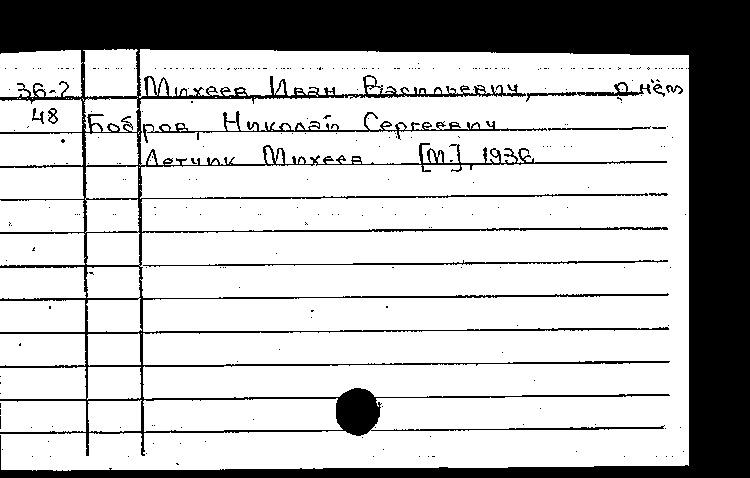 36-2 Михеев, Иван Васильевич, о нём
48 Бобров, Николай Сергеевич
Летчик Михеев. [М], 1936